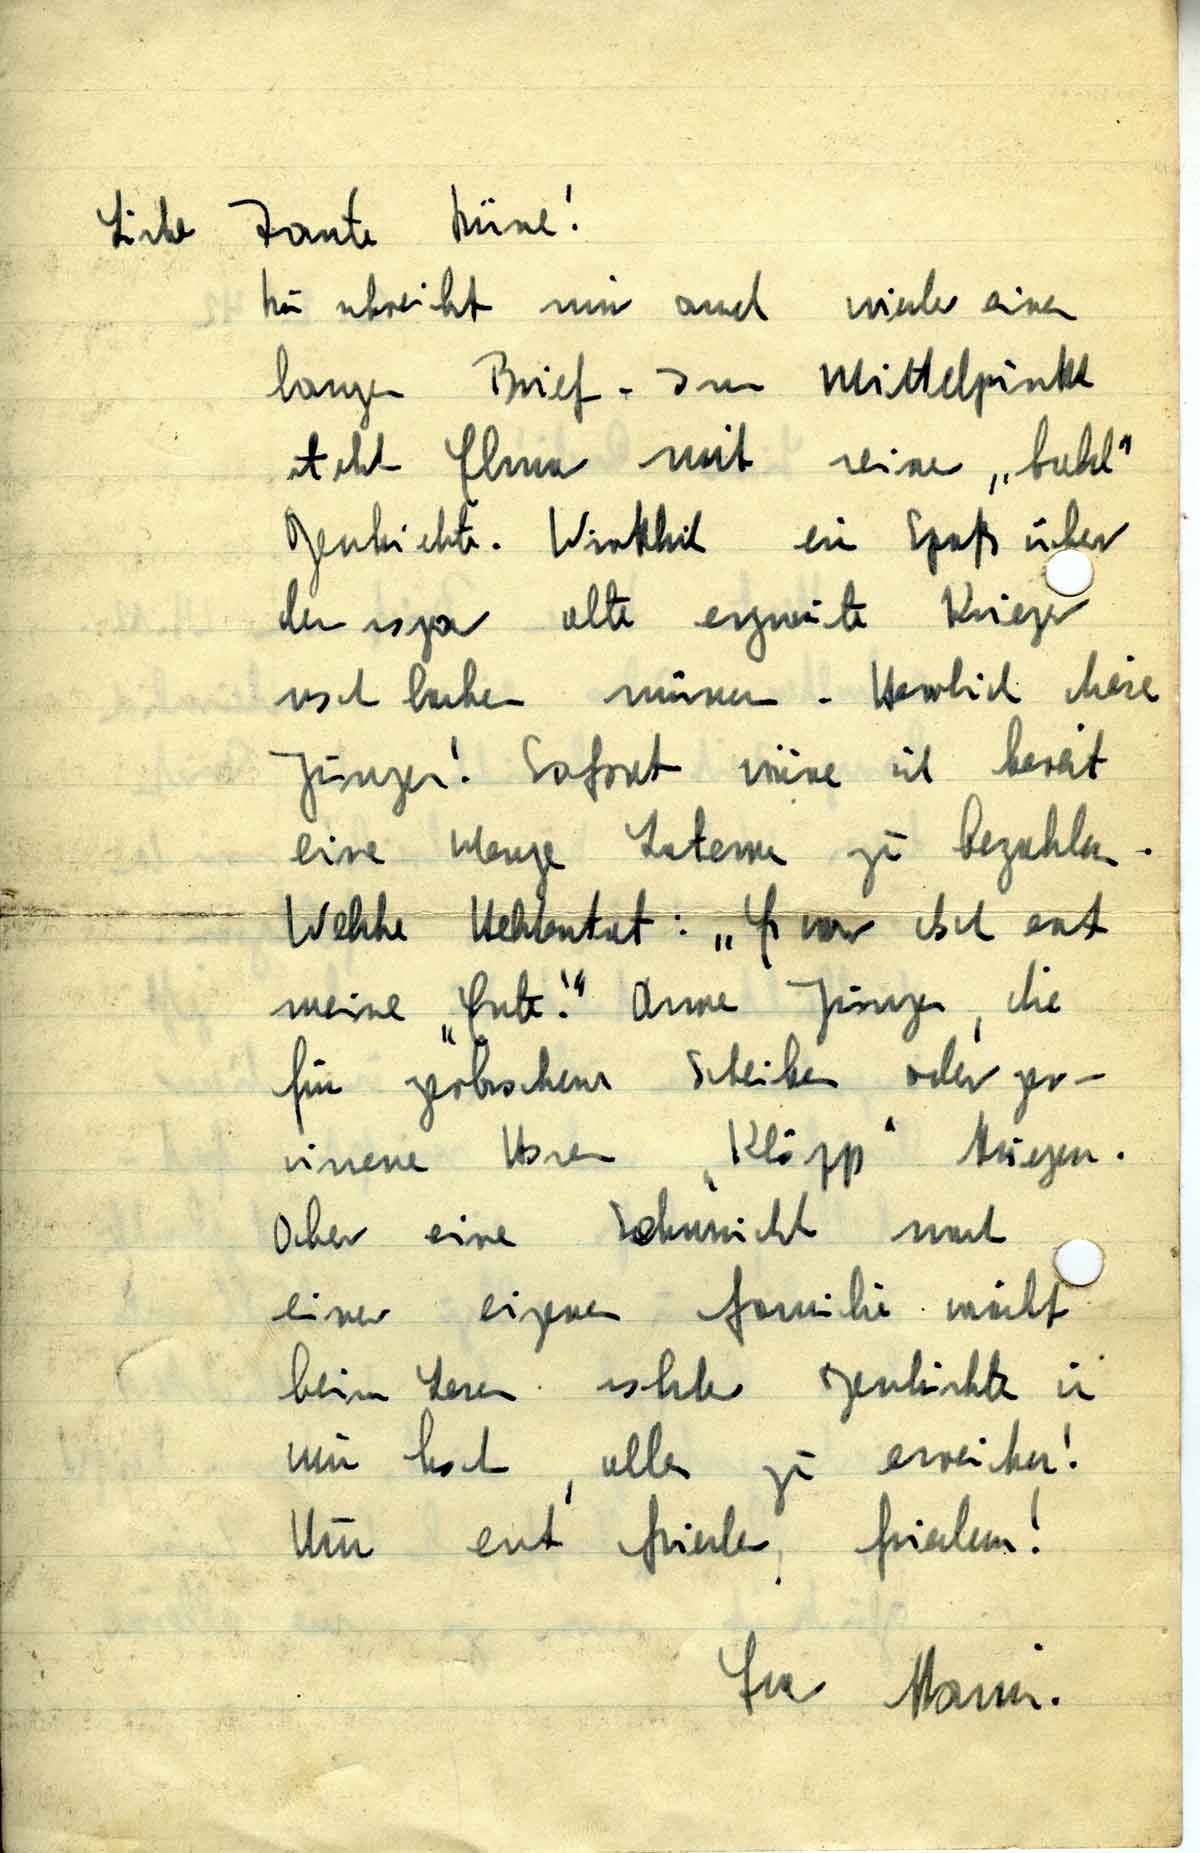 Liebe Tante Küne!
Du schreibst mir auch wieder einen
langen Brief. Im Mittelpunkt
steht Elmar mit seiner „buhl"
Geschichte. Wirklich ein Spaß über
den sogar alte ergraute Krieger
noch lachen müssen. Herrlich diese
Jungen! Sofort wäre ich bereit
eine Menge Laterne zu bezahlen.
Welche Heldentat: „Es war doch erst
meine „Erste!" Arme Jungen, die
für zerbrochene Scheiben oder zer-
rissene Hosen „Klöpp" kriegen.
Aber eine Sehnsucht nach
einer eigenen Familie wächst
beim Lesen solcher Geschichte in
mir hoch, alles zu erreichen!
Nur erst Frieden, Frieden!
Euer Hanni.